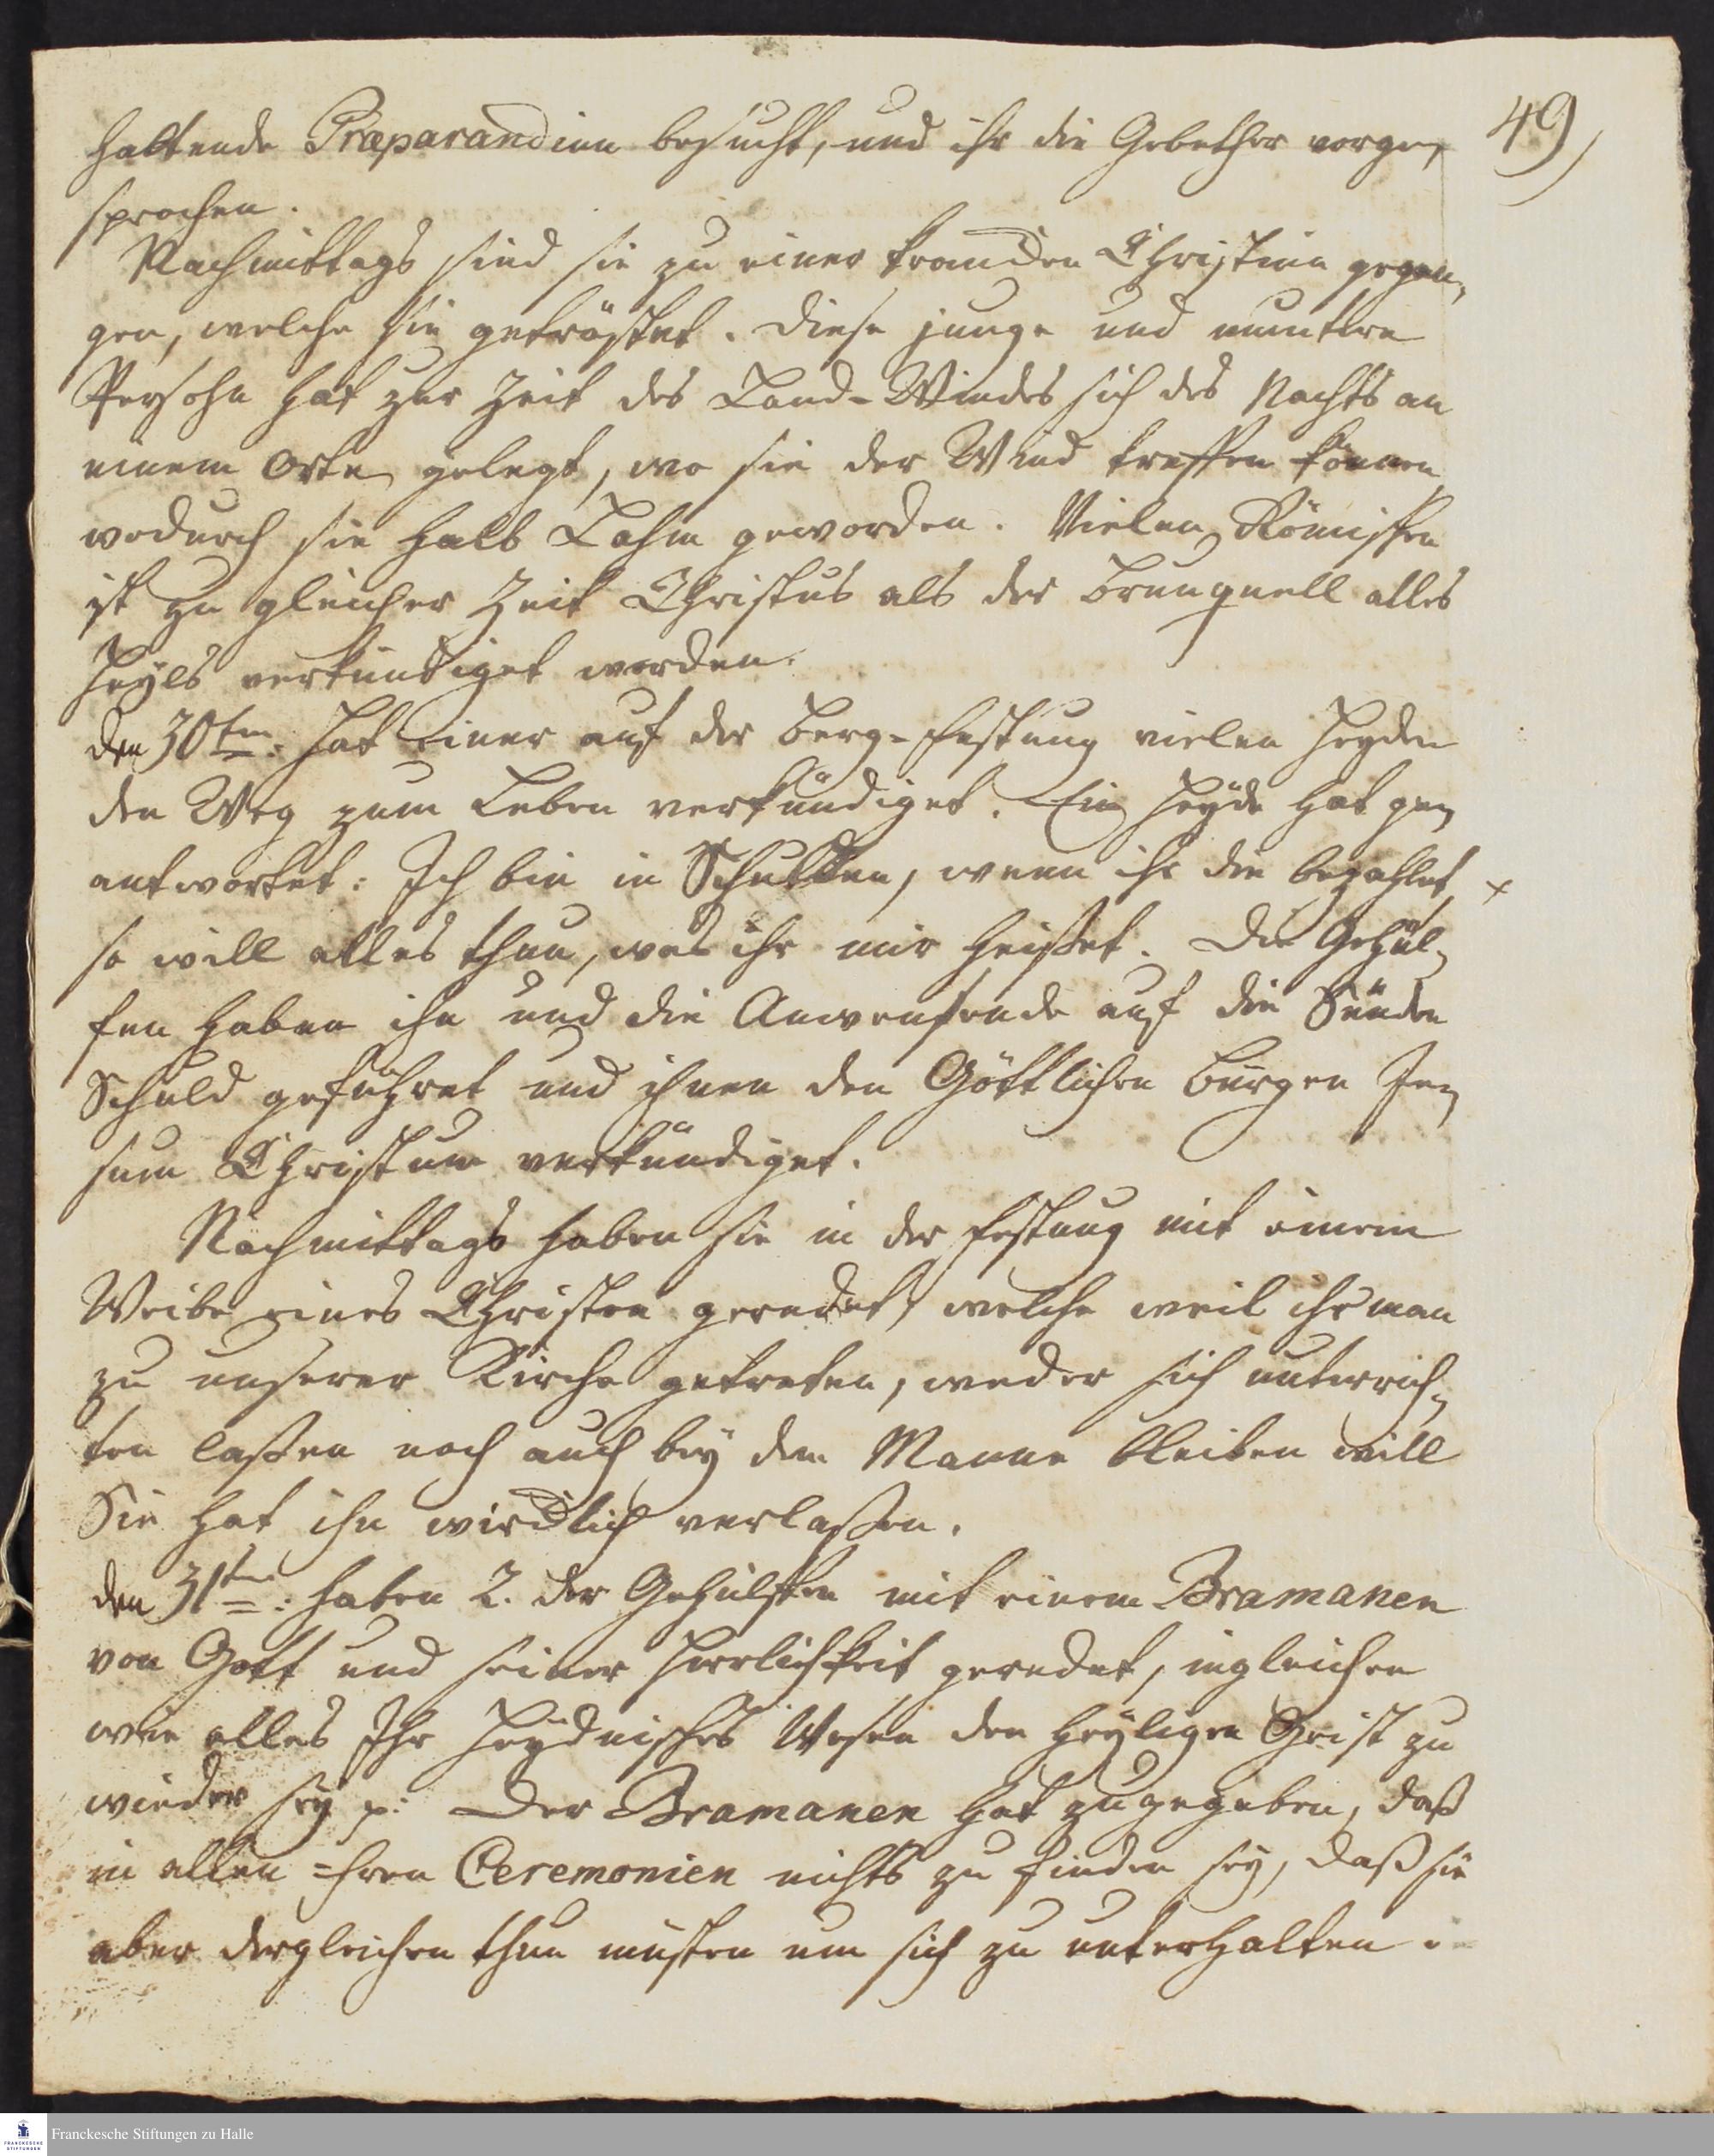 49)
haltende Præparandinn besucht, und ihr die Gebether vorge-
sprochen.
Nachmittags sind sie zu einer krancken Christinn gegan-
gen, welche sie getröstet. Diese junge und muntere
Persohn hat zur Zeit des Land-Windes sich des Nachts an
einem Orte gelegt, wo sie der Wind treffen können
wodurch sie halb Lahm geworden. Vielen Römischen
ist zu gleicher Zeit Christus als der Brunquell alles
Heyls verkündiget worden.
den 30ten: Hat einer auf der Berg-Festung vielen Heyden
den Weg zum Leben verkündiget. Ein Heyde hat ge-
antwortet: Ich bin in Schulden, wenn ihr die bezahlet, x
so will alles thun, was ihr mir heisset. Die Gehül-
fen haben ihn und die Anwesende auf die Sünden
Schuld geführet und ihnen den Göttlichen Bürgen Je-
sum Christum verkündiget.
Nachmittags haben sie in der Festung mit einem
Weibe eines Christen geredet, welche weil ihr man
zu unserer Kirche getreten, weder sich unterrich-
ten laßen noch auch bey dem Manne bleiben will
Sie hat ihn wircklich verlaßen.
den 31ten: haben 2. der Gehülffen mit einem Bramanen
von Gott und seiner Herrlichkeit geredet, ingleichen
wie alles Ihr Heydnisches Wesen den Heyligen Geist zu
wieder sey p: Der Bramanen hat zugegeben, daß
in allen ihren Ceremonien nichts zu finden sey, daß sie
aber dergleichen thun müsten um sich zu unterhalten.
Franckesche Stiftungen zu Halle
FRANCKESCHE
STIFTUNGEN